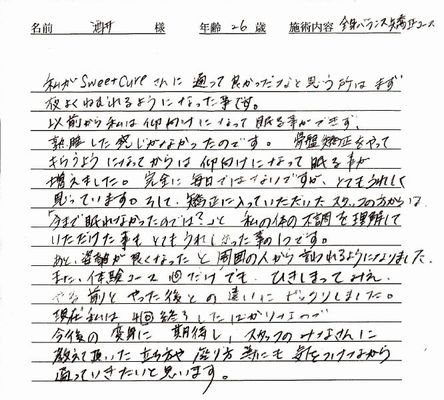 名前 酒井 様 年齢 26 歳 施術内容 全身バランス矯正コース
私がSweetCureさんに通って良かったなと思う所はまず
夜よくねむれるようになった事です。
以前から私は仰向けになって眠る事ができず、
熟睡した感じがなかったのです。骨盤矯正をやって
もらうようになってからは仰向けになって眠る事が
増えました。完全に毎日ではないですが、とてもうれしく
思っています。そして、矯正に入っていただいたスタッフの方からは、
「今まで眠れなかったのでは？」と私の体の不調を理解して
いただけた事もとてもうれしかった事の1つです。
あと、姿勢が良くなったと周囲の人から言われるようになりました。
また、体験コース1回だけでも、ひきしまってみえ、
やる前とやった後との違いにビックリしました。
現在私は4回終了したばかりなので
今後の変身に期待し、スタッフのみなさんに
教えて頂いた立ち方や座り方等にも気をつけながら
通っていきたいと思います。